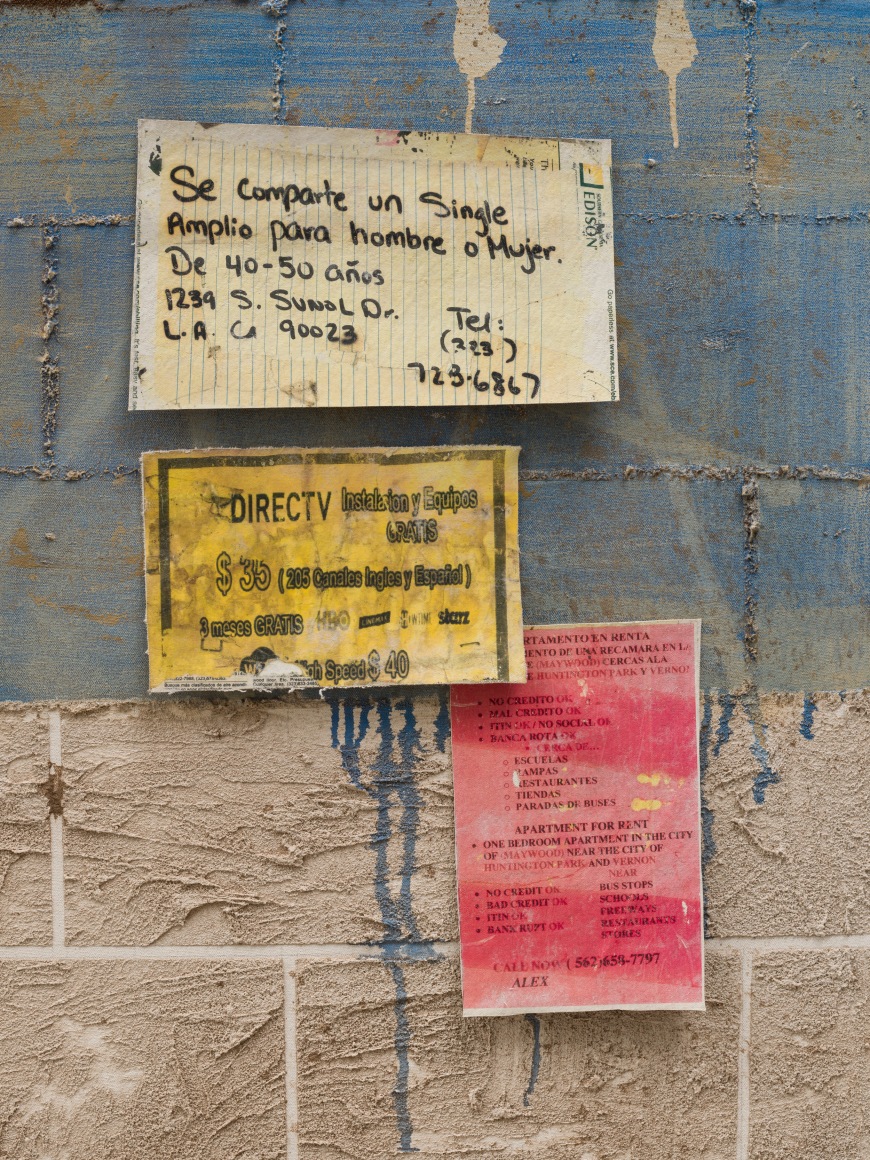 Se comparte un Single
Amplio para hombre o Mujer.
De 40-50 años
1239 S. SUNOL Dr.
L.A. Ca 90023
Tel:
(323)
723-6867
EDISON
Go paperless at www.sce.com/eb
DIRECTV Instalacion y Equipos
GRATIS
$ 35 ( 205 Canales Ingles y Español )
3 meses GRATIS HBO CINEMAX SHOWTIME starz
High Speed $ 40
RTAMENTO EN RENTA
MENTO DE UNA RECAMARA EN LA
E (MAYWOOD) CERCAS ALA
E HUNTINGTON PARK Y VERNON
• NO CREDITO OK
• MAL CREDITO OK
• ITIN OK / NO SOCIAL OK
• BANCA ROTA OK
• CERCA DE...
○ ESCUELAS
○ RAMPAS
○ RESTAURANTES
○ TIENDAS
○ PARADAS DE BUSES
APARTMENT FOR RENT
• ONE BEDROOM APARTMENT IN THE CITY
OF (MAYWOOD) NEAR THE CITY OF
HUNTINGTON PARK AND VERNON
NEAR
• NO CREDIT OK BUS STOPS
• BAD CREDIT OK SCHOOLS
• ITIN OK FREEWAYS
• BANK RUPT OK RESTAURANTS
STORES
CALL NOW ( 562)658-7797
ALEX